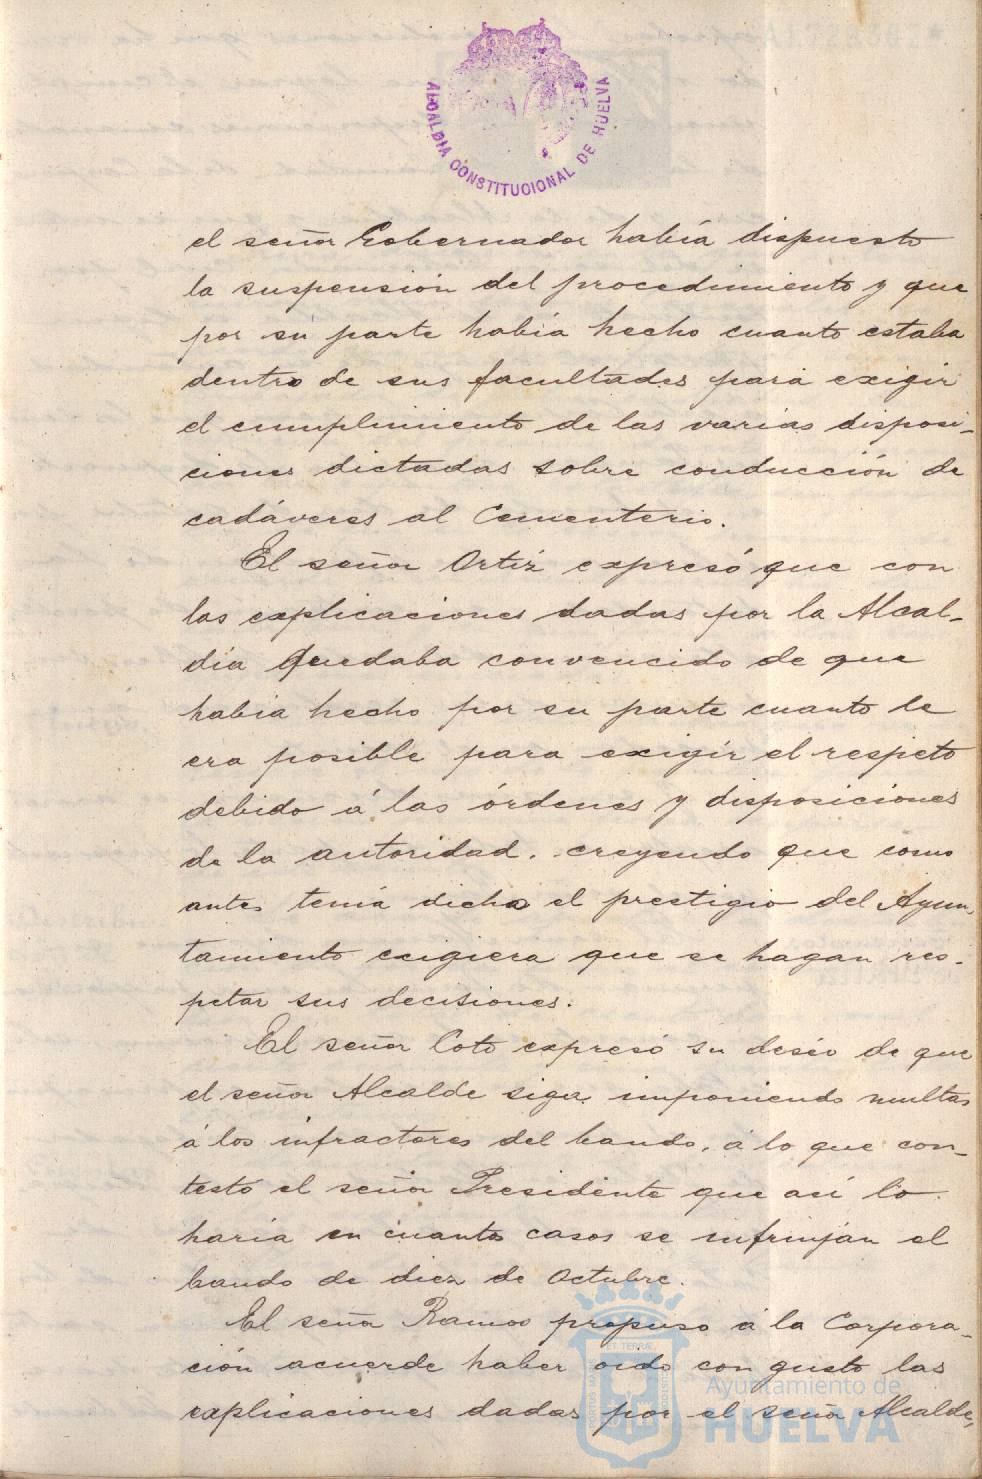 ALCALDIA CONSTITUCIONAL DE HUELVA
el señor Gobernador había dispuesto
la suspensión del procedimiento y que
por su parte había hecho cuanto estaba
dentro de sus facultades para exigir
el cumplimiento de las varias disposi-
ciones dictadas sobre conducción de
cadáveres al Cementerio.
El señor Ortiz expresó que con
las explicaciones dadas por la Alcal-
día quedaba convencido de que
había hecho por su parte cuanto le
era posible para exigir el respeto
debido á las órdenes y disposiciones
de la autoridad. creyendo que como
antes tenía dicho el prestigio del Ayun-
tamiento exigiera que se hagan res-
petar sus decisiones.
El señor Coto expresó su deseo de que
el señor Alcalde siga imponiendo multas
á los infractores del bando, á lo que con-
testó el señor Presidente que así lo
haría en cuantos casos se infrinján el
bando de diez de Octubre.
El señor Ramos propuso á la Corpora-
ción acuerde haber oido con gusto las
explicaciones dadas por el señor Alcalde,
Ayuntamiento de
HUELVA